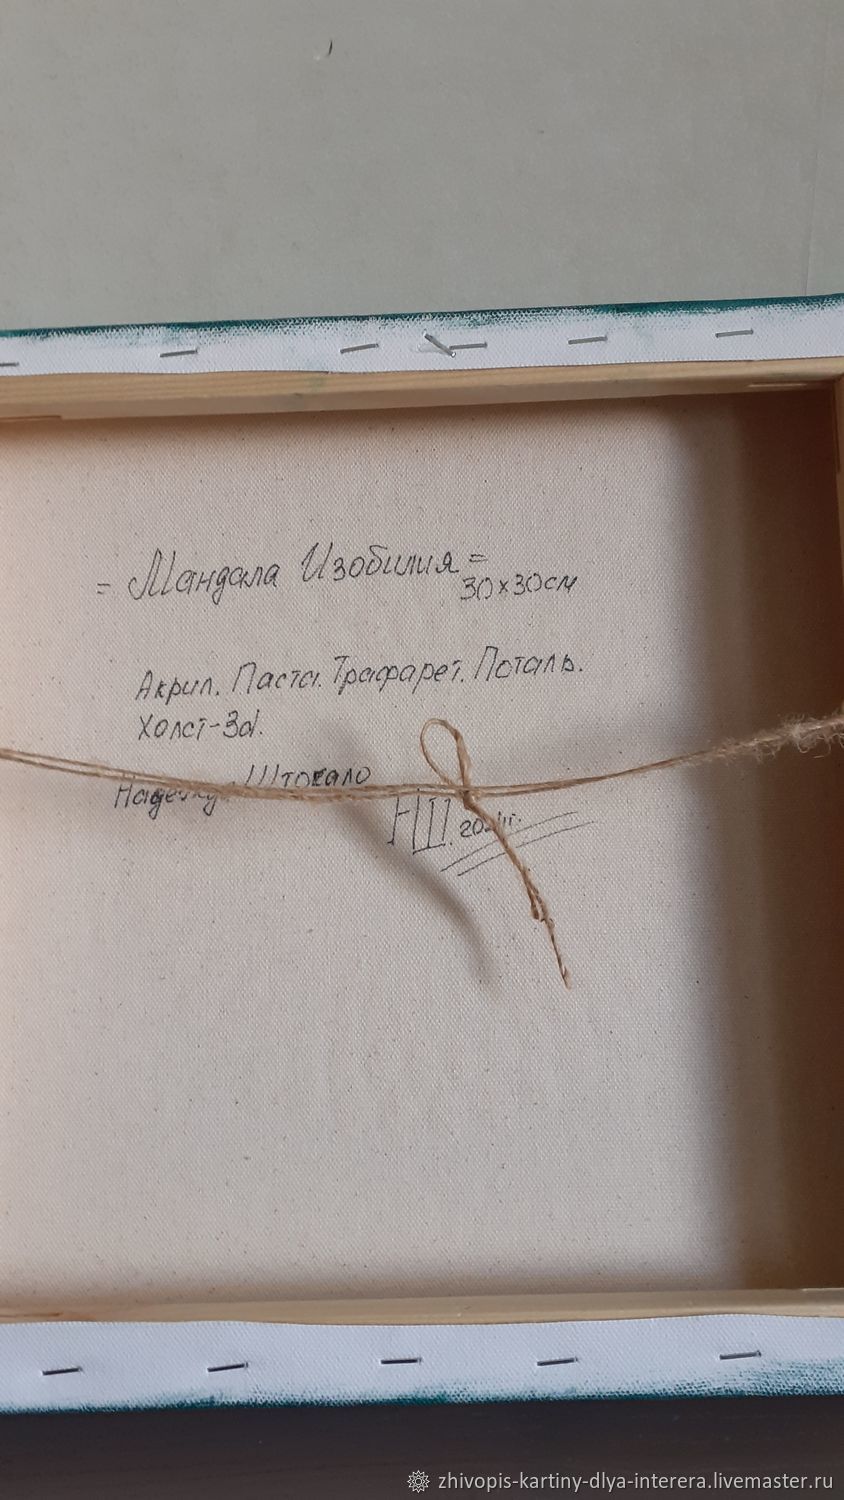 = Мандала Изобилия =
30×30см
Акрил. Паста. Трафарет. Поталь.
Холст-3d.
Штокало
НШ.
zhivopis-kartiny-dlya-interera.livemaster.ru